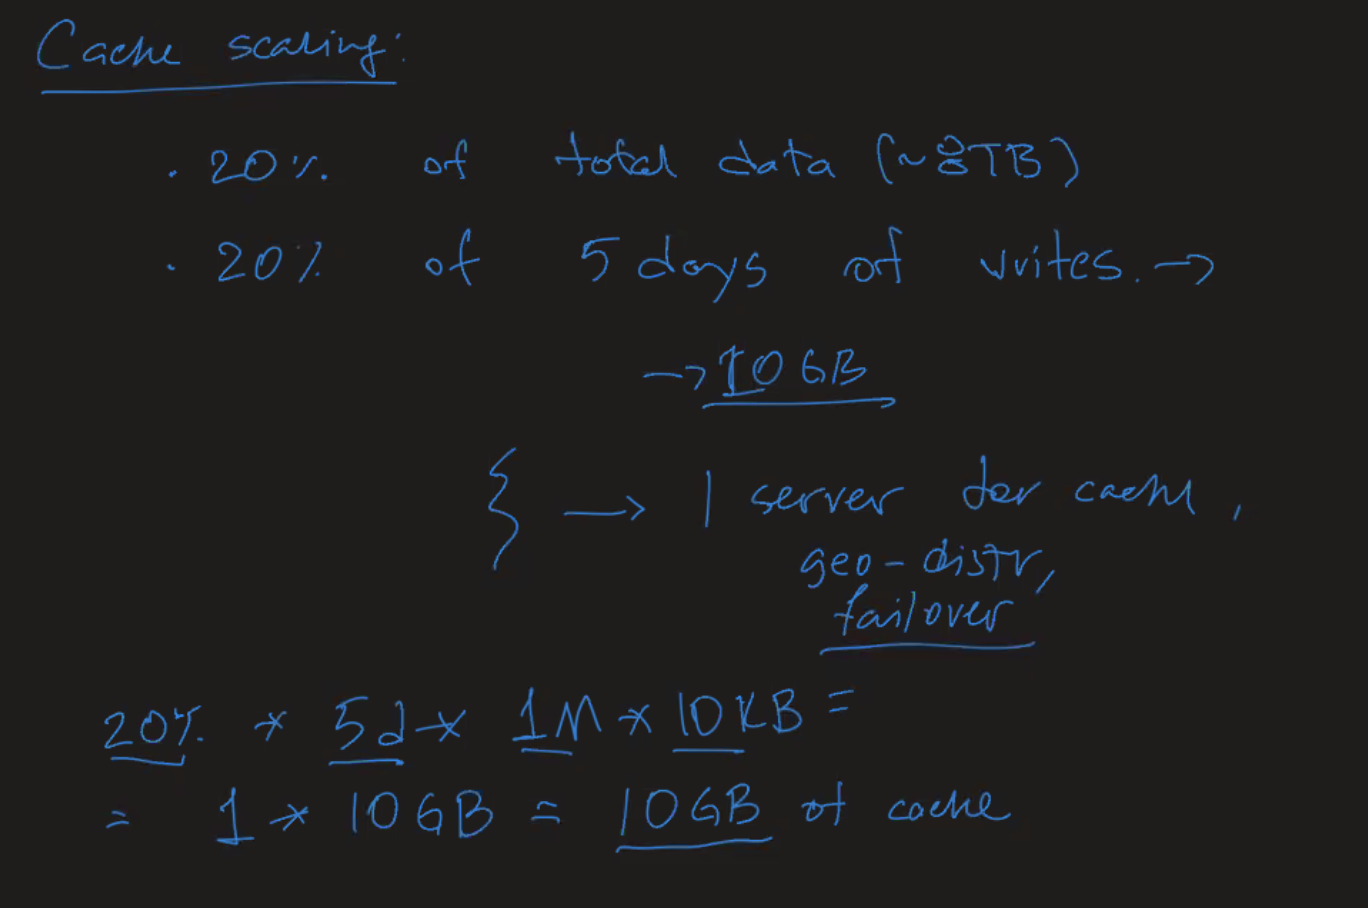 Cache scaling:
. 20% of total data (~8TB)
. 20% of 5 days of writes. →
→ 10GB
} → 1 server for cache,
geo-distr,
failover
20% * 5d * 1M * 10KB =
= 1 * 10GB = 10GB of cache